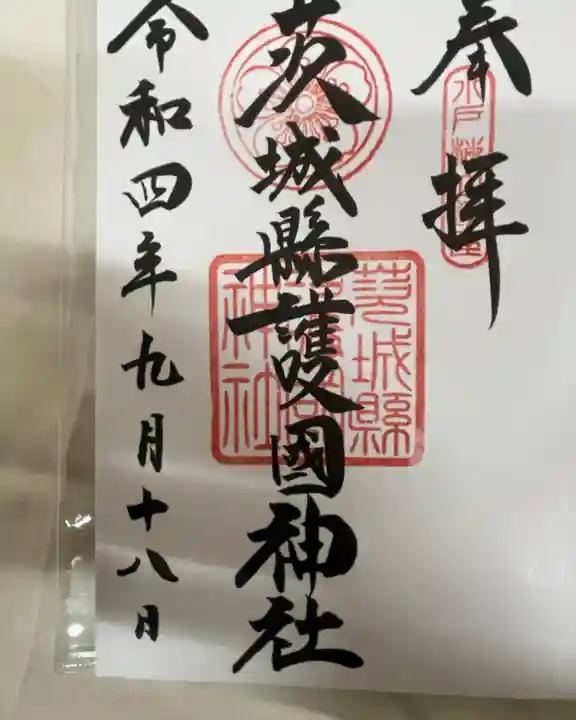 奉拝
茨城縣護國神社
茨城縣
護國
神社
令和四年九月十八日